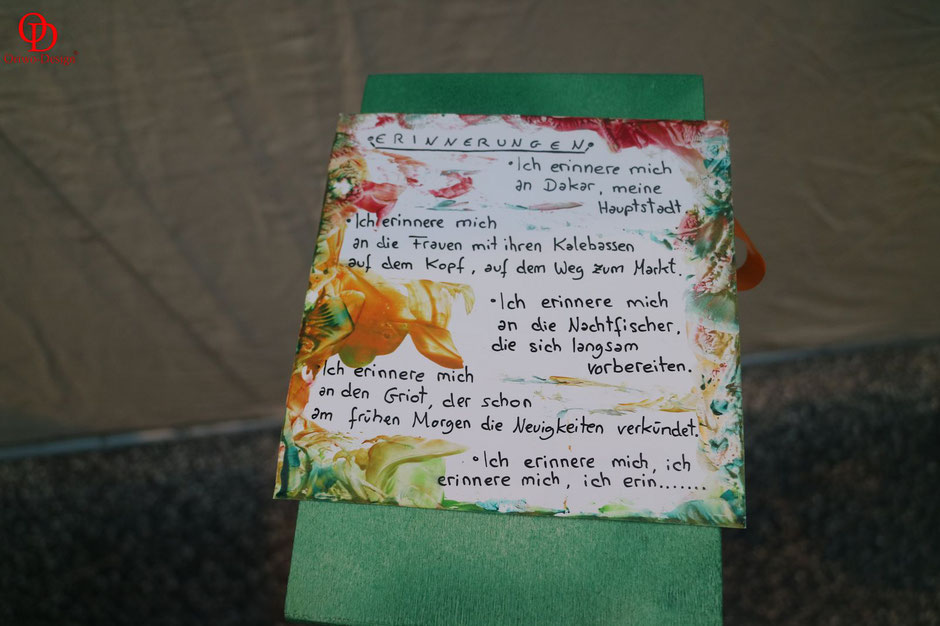 OD
ERINNERUNGEN
•Ich erinnere mich
an Dakar, meine
Hauptstadt
•Ich erinnere mich
an die Frauen mit ihren Kalebassen
auf dem Kopf, auf dem Weg zum Markt.
•Ich erinnere mich
an die Nachtfischer,
die sich langsam
vorbereiten.
•Ich erinnere mich
an den Griot, der schon
am frühen Morgen die Neuigkeiten verkündet.
•Ich erinnere mich, ich
erinnere mich, ich erin.......